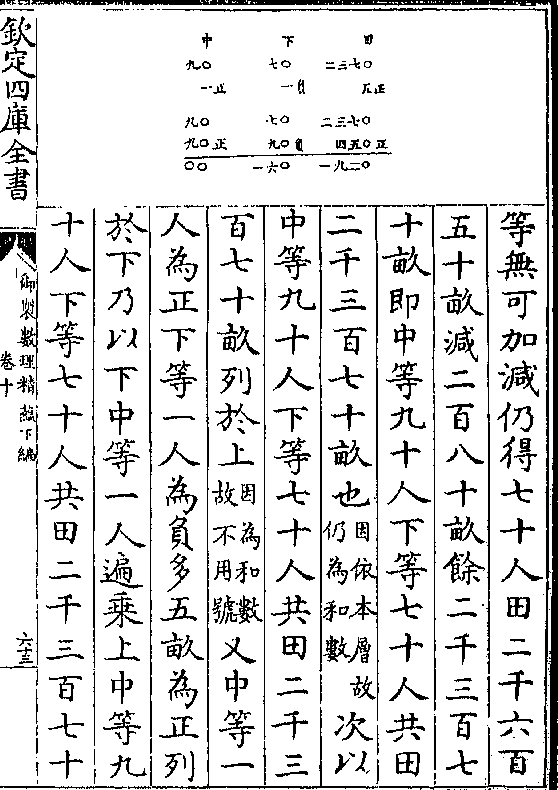 中 下 田
九〇 七〇 二三七〇
一正 一負 五正
九〇 七〇 二三七〇
九〇正 九〇負 四五〇正
〇〇 一六〇 一九二〇
等無可加減仍得七十人田二千六百
五十畝減二百八十畝餘二千三百七
十畝即中等九十人下等七十人共田
二千三百七十畝也因依本層故仍為和數次以
中等九十人下等七十人共田二千三
百七十畝列於上因為和數故不用號又中等一
人為正下等一人為負多五畝為正列
於下乃以下中等一人遍乘上中等九
十人下等七十人共田二千三百七十
欽定四庫全書
御製數理精蘊下編
卷十
六十三